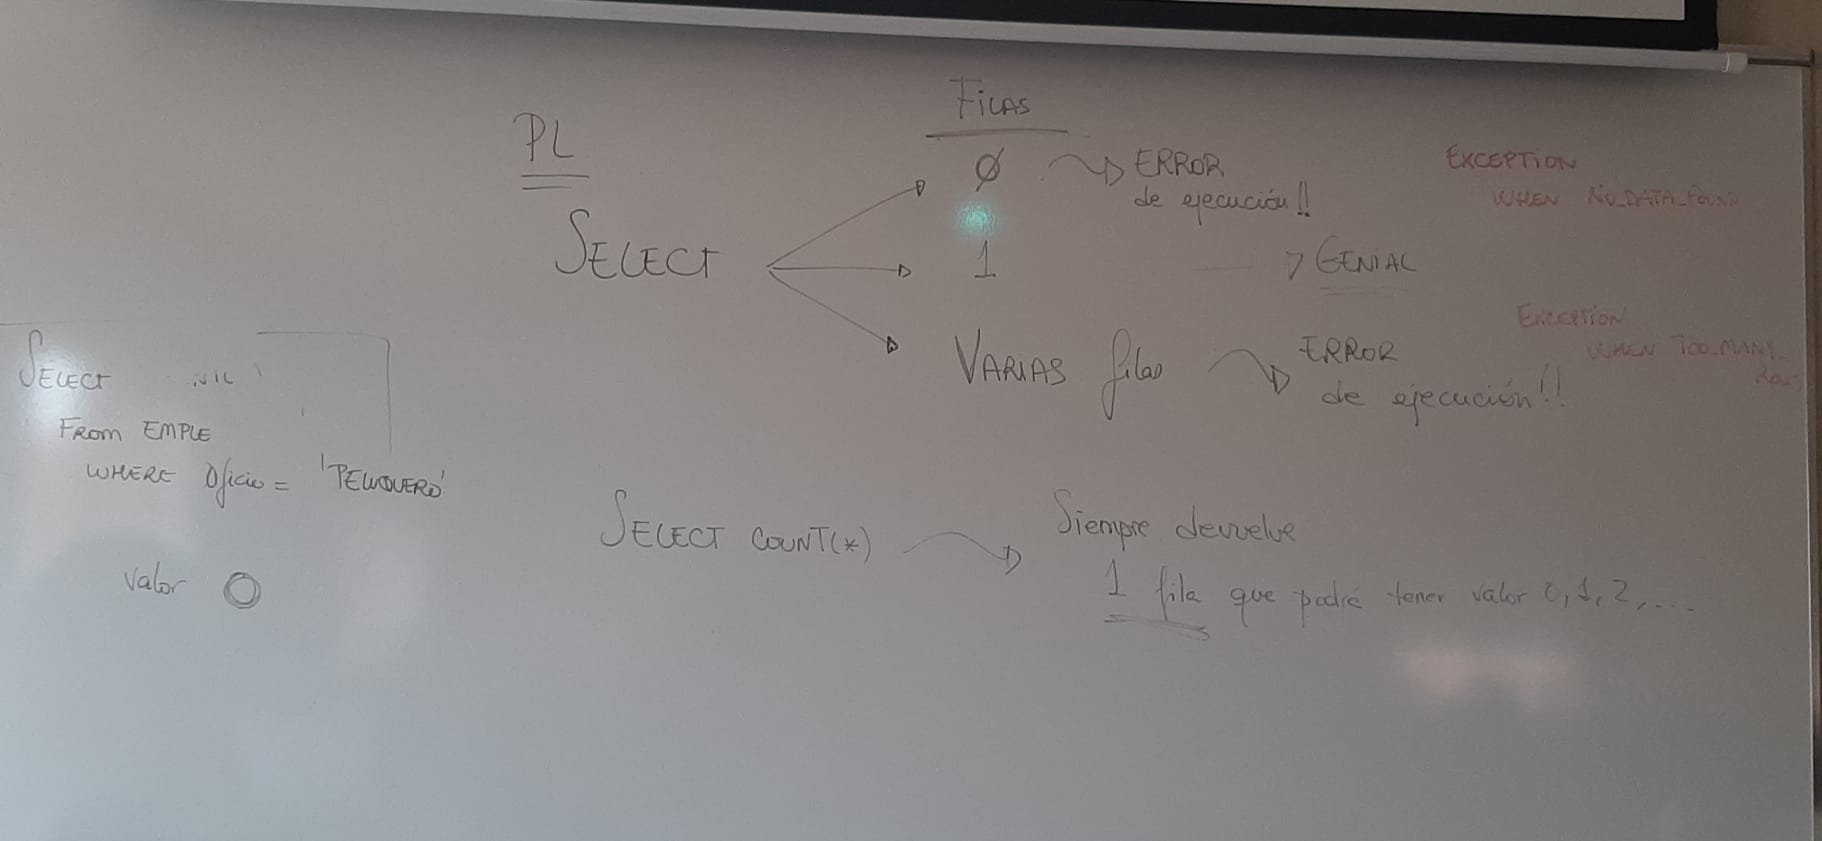 PL
SELECT
FILAS
Ø
ERROR
de ejecución!!
EXCEPTION
WHEN NO_DATA_FOUND
1
GENIAL
VARIAS filas
ERROR
de ejecución!!
EXCEPTION
WHEN TOO_MANY_
ROWS
SELECT
FROM EMPLE
WHERE Oficio = 'PELUQUERO'
Valor 0
SELECT COUNT(*)
Siempre devuelve
1 fila que podrá tener valor 0, 1, 2, ....